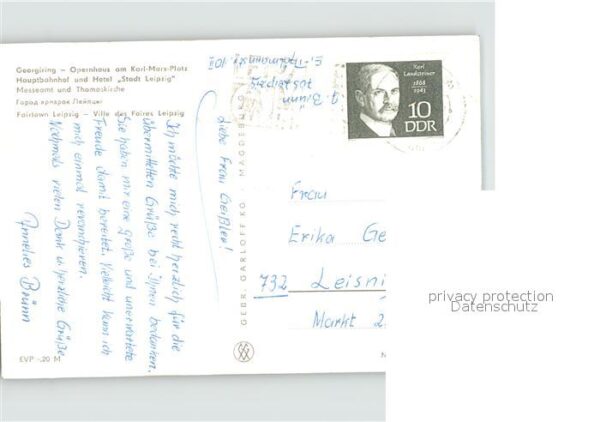 Georgiring – Opernhaus am Karl-Marx-Platz
Hauptbahnhof und Hotel „Stadt Leipzig"
Messeamt und Thomaskirche
Город ярмарок Лейпциг
Fairtown Leipzig – Ville des Foires Leipzig
Liebe Frau Geißler!
Ich möchte mich recht herzlich für die
übermittelten Grüße bei Ihnen bedanken.
Sie haben mir eine große und unerwartete
Freude damit bereitet. Vielleicht kann ich
mich einmal revanchieren.
Nochmals vielen Dank u. herzliche Grüße
Annelies Brünn
EVP -,20 M
GEBR. GARLOFF KG · MAGDEBURG
A. Brünn
705 Leipzig
Karl
Landsteiner
1868
1943
10
DDR
Frau
Erika Ge
732 Leisni
Markt 2
N
privacy protection
Datenschutz